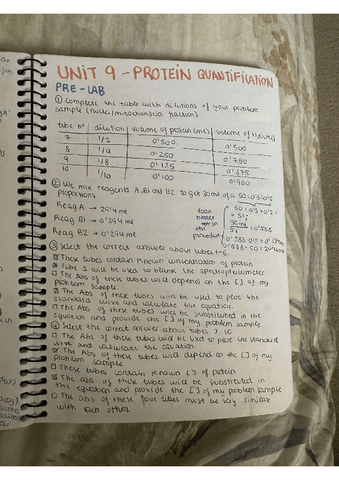 UNIT 9 - PROTEIN QUANTIFICATION
PRE-LAB
① Complete the table with dilutions of your problem
sample (nuclei/mitochondria fraction)
tube nº dilution volume of protein (mL) volume of H2O (mL)
7 1/2 0'500 0'500
8 1/4 0'250 0'750
9 1/8 0'125 0'875
10 1/10 0'100 0'900
② We mix reagents A, B1 and B2 to get 30ml of a 50:0'5:0'5
proportions
Reag A → ml
Reag B1 → 0'294 ml
Reag B2 → 0'294 ml
look
in
the
procedure
50+0'5+0'5=
= 51;
30ml
51 = 0'588
0'588·0'5 =
0'588·50 =
③ Select the correct answer about tubes 1-6.
These tubes contain known concentration of protein
Tube 1 will be used to blank the spectrophotometer
The Abs of these tubes will depend on the [] of my
problem sample
The Abs of these tubes will be used to plot the
standard curve and calculate the equation
The Abs of these tubes will be substituted in the
equation and provide the [] of my problem sample
④ Select the correct answer about tubes 7-10
The Abs of these tubes will be used to plot the standard
curve and calculate the equation
The Abs of these tubes will depend on the [] of my
problem sample
These tubes contain known [] of protein
The abs of these tubes will be substituted in
the equation and provide the [] of my problem sample
The abs of these four tubes must be very similar
with each other